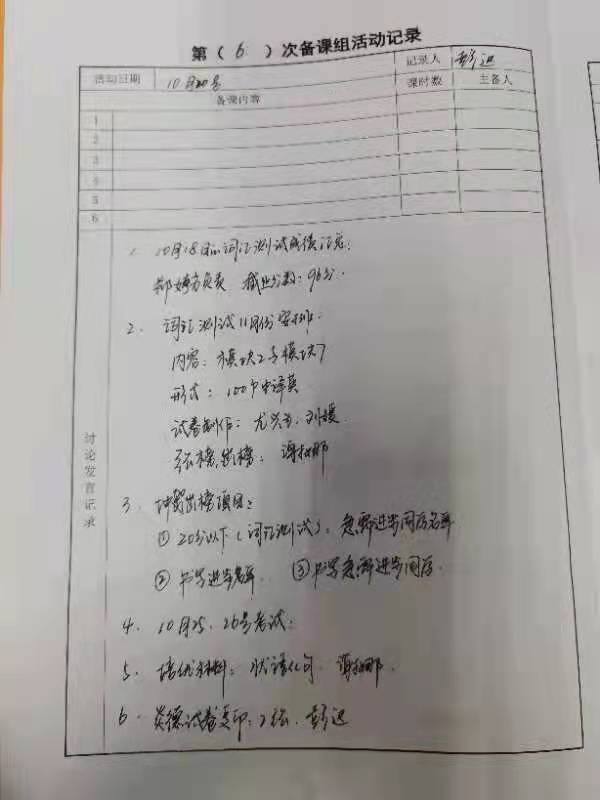 第（ 6 ）次备课组活动记录
活动日期 10月20号 记录人 彭迅
备课内容 课时数 主备人
1
2
3
4
5
6
讨论发言记录
1. 10月18日词汇测试成绩汇总
负责 截止分数：96分.
2. 词汇测试11月份安排.
内容：模块2与模块7
形式：100个中译英
试卷制作： 刘媛
张榜 出榜： 谢娜
3. 出榜项目：
① 20分以下（词汇测试），急需进步同学名单
② 书写进步名单. ③ 书写急需进步同学.
4. 10月25、26号考试.
5. 培优材料：状语从句. 谢娜.
6. 英德试卷复印：2套. 彭迅